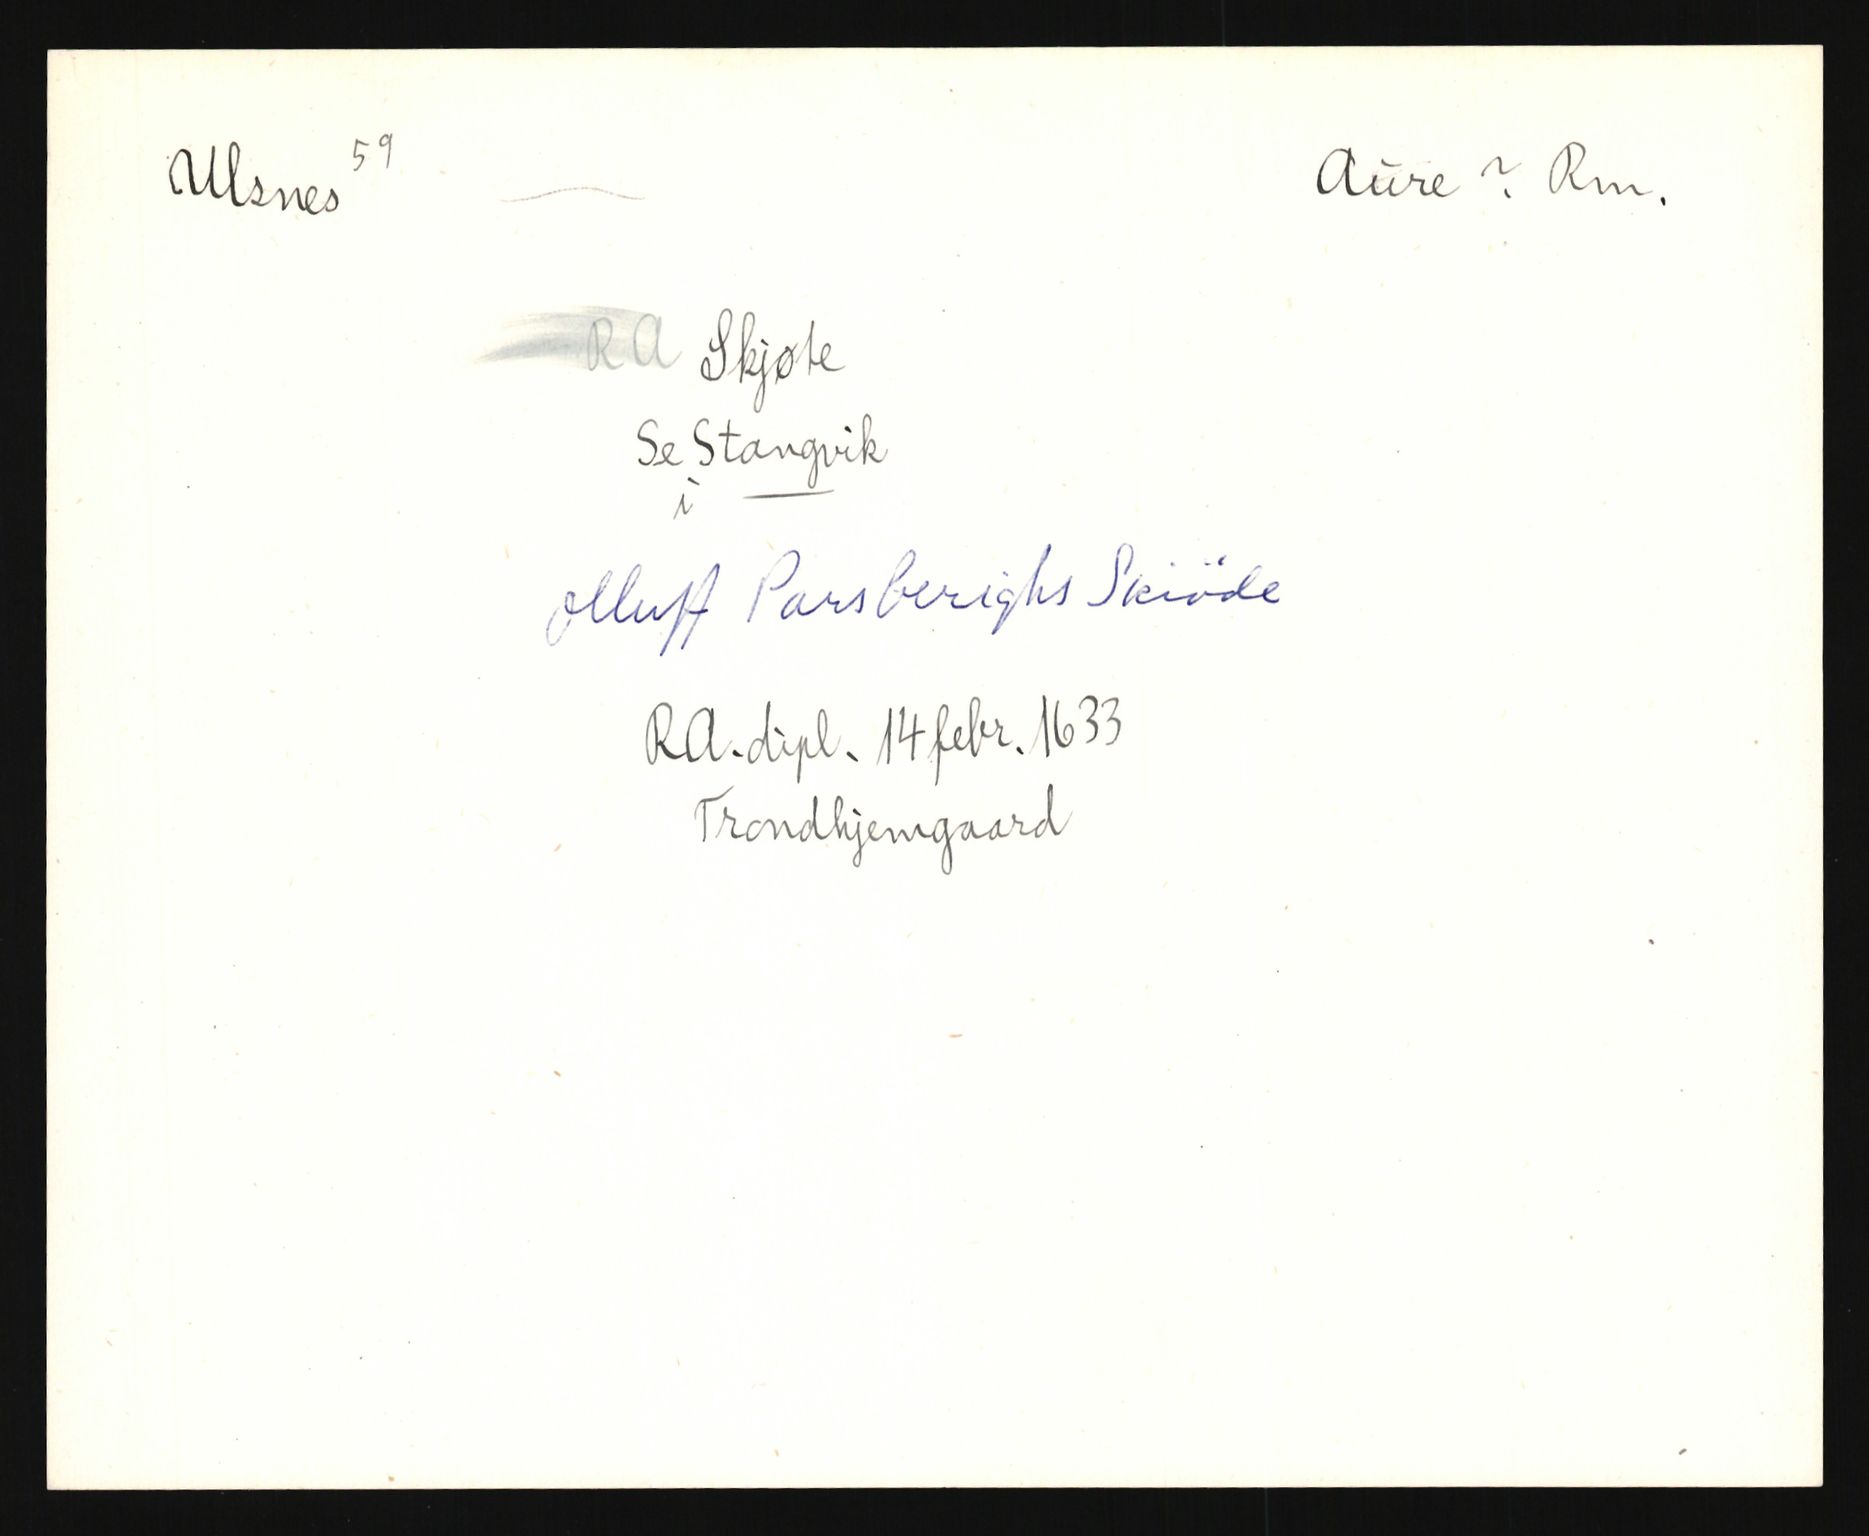 Ulsnes 59
Aure ? Rm.
RA Skjøte
Se Stangvik
i
Olluff Parsberighs Skiöde
RA. dipl. 14 febr. 1633
Trondhjemgaard